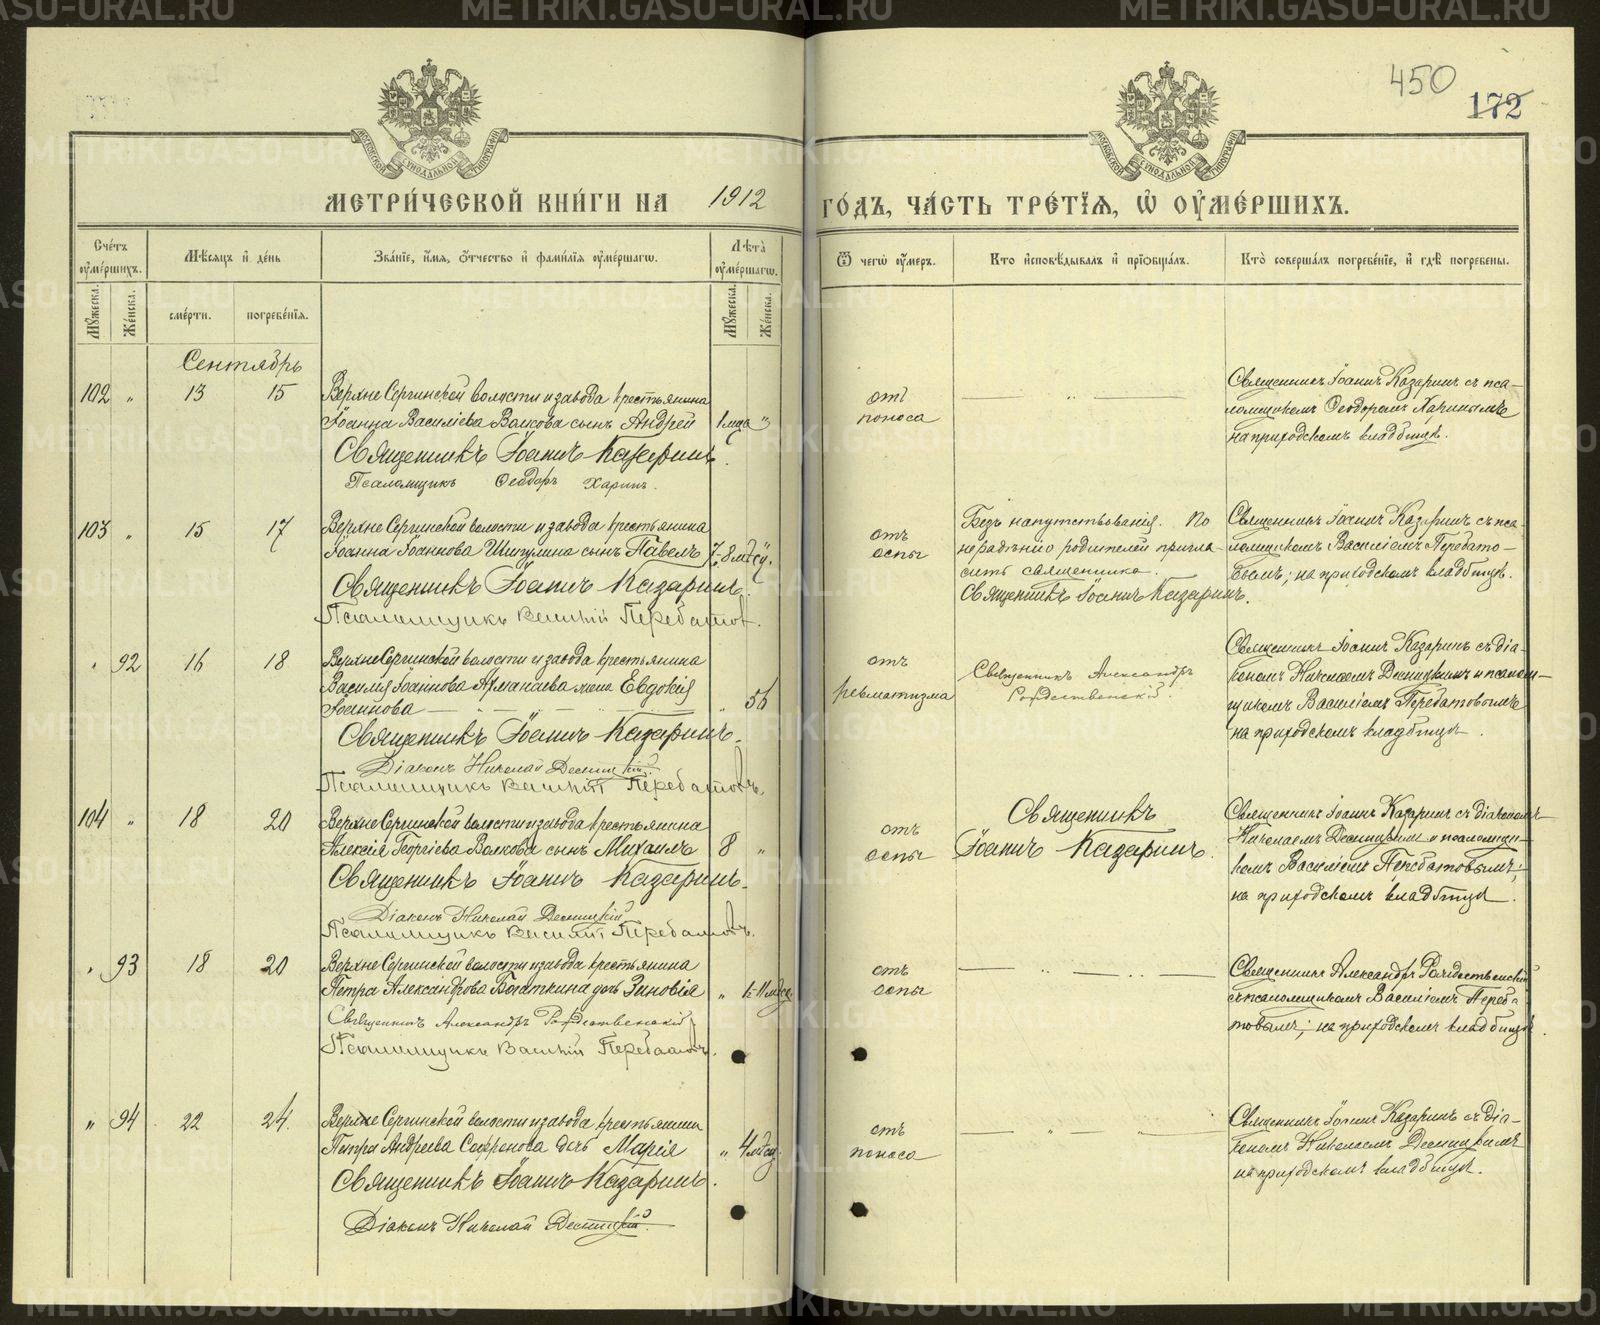 450
172
МОСКОВСКОЙ СѴНОДАЛЬНОЙ ТИПОГРАФІИ
МОСКОВСКОЙ СѴНОДАЛЬНОЙ ТИПОГРАФІИ
МЕТРИ́ЧЕСКОЙ КНИ́ГИ НА 1912 ГО́ДЪ, ЧА́СТЬ ТРЕ́ТІѦ, Ѡ҆ ОУ҆МЕ́РШИХЪ.
Сче́тъ оу҆ме́ршихъ.
Мѣ́сяцъ и҆ де́нь
Зва́ніе, и҆́мя, ѻ҆́тчество и҆ фами́лія оу҆ме́ршагѡ.
Лѣта̀ оу҆ме́ршагѡ.
Ѿ чегѡ̀ оу҆́меръ.
Кто̀ и҆сповѣ́дывалъ и҆ прїѡбща́лъ.
Кто̀ соверша́лъ погребе́ніе, и҆ гдѣ̀ погребе́ны.
Му́жеска.
Же́нска.
сме́рти.
погребе́нія.
Му́жеска.
Же́нска.
Сентябрь
102 " 13 15
Верхне Сергинской волости и завода крестьянина
Іоанна Василіева Волкова сынъ Андрей
1 мца "
Священникъ Іоаннъ Казаринъ.
Псаломщикъ Ѳеодоръ Харинъ.
отъ
поноса
Священникъ Іоаннъ Казаринъ съ пса-
ломщикомъ Ѳеодоромъ Харинымъ
на приходскомъ кладбищѣ.
103 " 15 17
Верхне Сергинской волости и завода крестьянина
Іоанна Іоаннова Шигулина сынъ Павелъ
Священникъ Іоаннъ Казаринъ.
Псаломщикъ Василій Перебатов.
отъ
оспы
Безъ напутствованія. По
нерадѣнію родителей пригла
сить священника.
Священникъ Іоаннъ Казаринъ.
Священникъ Іоаннъ Казаринъ съ пса-
ломщикомъ Василіемъ Перебато-
вымъ; на приходскомъ кладбищѣ.
" 92 16 18
Верхне Сергинской волости и завода крестьянина
Василія Іоаннова Атманаева жена Евдокія
Іоаннова
" 56
Священникъ Іоаннъ Казаринъ.
Діаконъ Николай Десницкій.
Псаломщикъ Василій Перебатовъ.
отъ
ревматизма
Священникъ Александръ
Рождественскій
Священникъ Іоаннъ Казаринъ съ діа-
кономъ Николаемъ Десницкимъ и псалом-
щикомъ Василіемъ Перебатовымъ
на приходскомъ кладбищѣ.
104 " 18 20
Верхне Сергинской волости и завода крестьянина
Алексія Георгіева Волкова сынъ Михаилъ
8 "
Священникъ Іоаннъ Казаринъ.
Діаконъ Николай Десницкій
Псаломщикъ Василій Перебатовъ.
отъ
оспы
Священникъ
Іоаннъ Казаринъ.
Священникъ Іоаннъ Казаринъ съ діакономъ
Николаемъ Десницкимъ и псаломщи-
комъ Василіемъ Перебатовымъ;
на приходскомъ кладбищѣ.
" 93 18 20
Верхне Сергинской волости и завода крестьянина
Петра Александрова Богаткина дочь Зиновія
Священникъ Александръ Рождественскій
Псаломщикъ Василій Перебатовъ.
отъ
оспы
Священникъ Александръ Рождественскій
съ псаломщикомъ Василіемъ Переба-
товымъ; на приходскомъ кладбищѣ.
" 94 22 24.
Верхне Сергинской волости и завода крестьянина
Петра Андреева Софронова дочь Марія
" 4 мѣсц.
Священникъ Іоаннъ Казаринъ.
Діаконъ Николай Десницкій.
отъ
поноса
Священникъ Іоаннъ Казаринъ съ діа-
кономъ Николаемъ Десницкимъ
на приходскомъ кладбищѣ.
METRIKI.GASO-URAL.RU